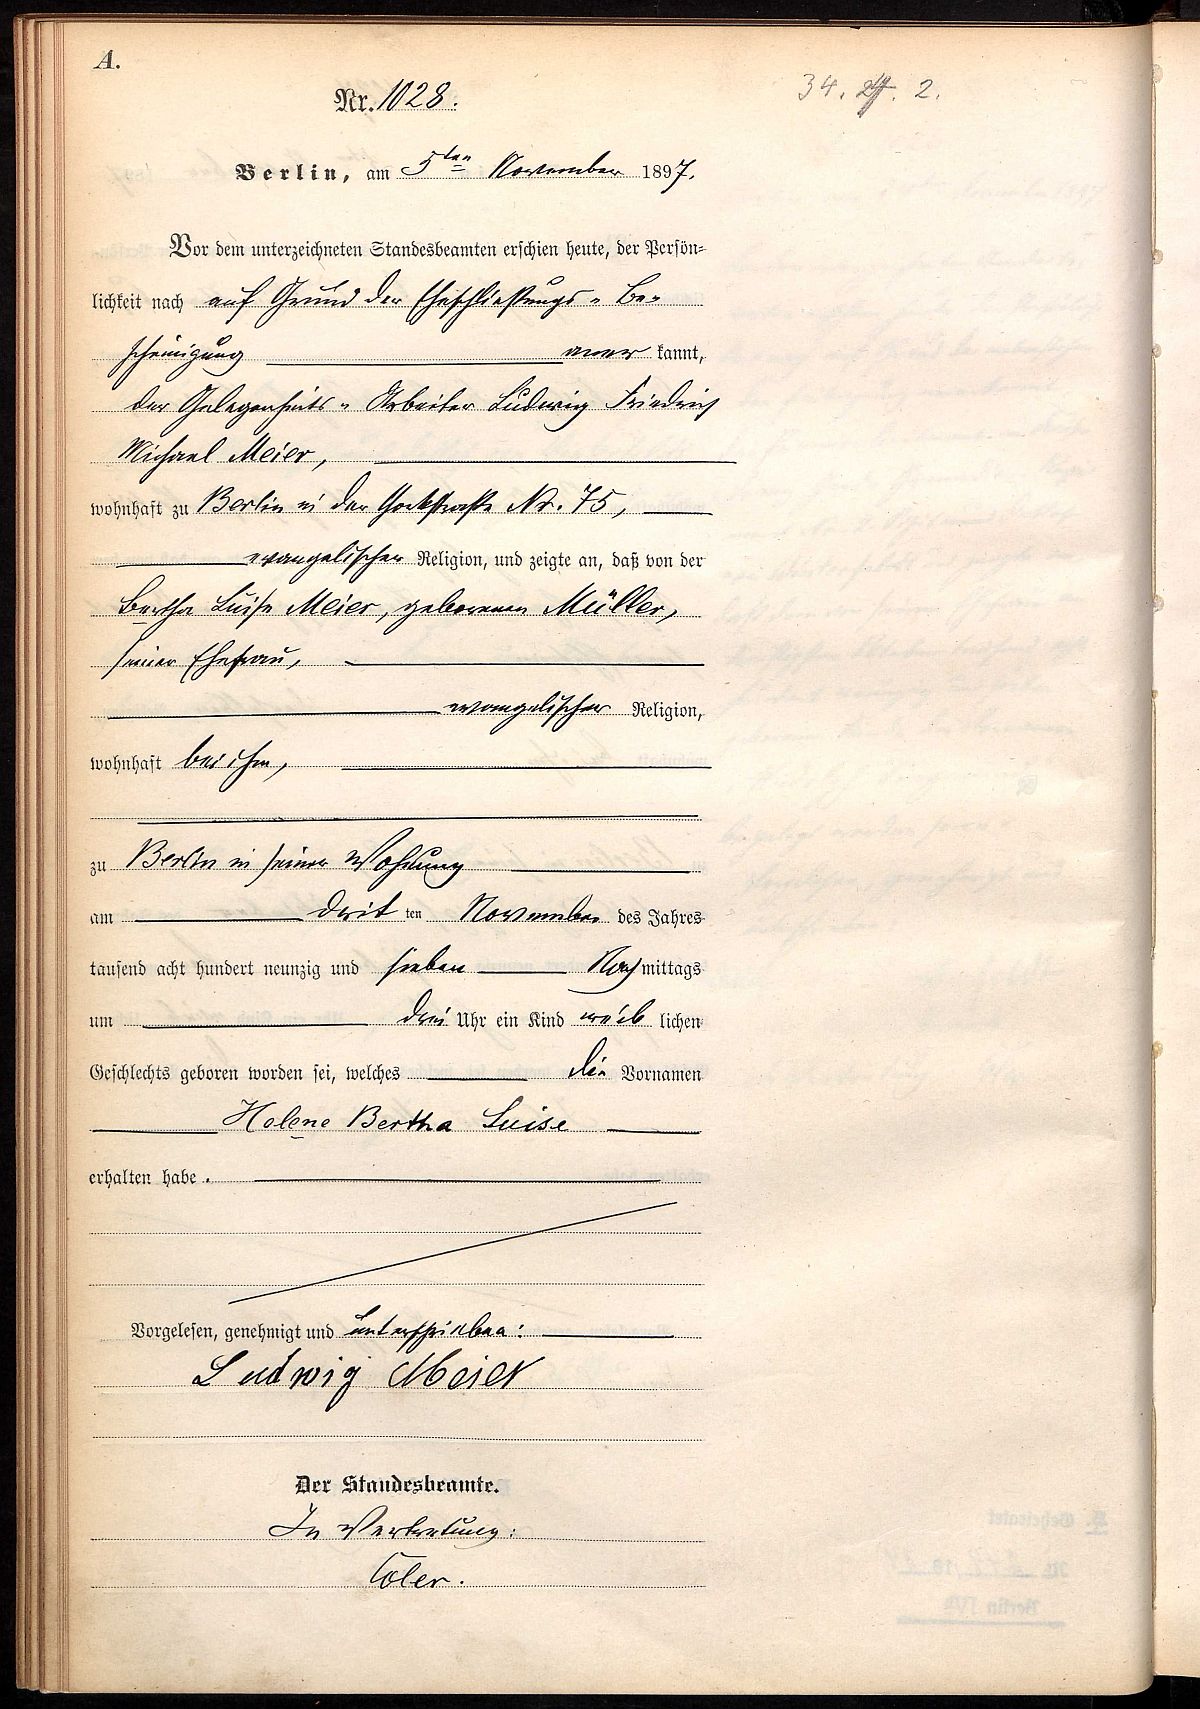 A.
Nr. 1028.
34. 2. 2.
Berlin, am 5ten November 1897.
Vor dem unterzeichneten Standesbeamten erschien heute, der Persön-
lichkeit nach auf Grund der Eheschließungs-Be-
scheinigung aner kannt,
der Gelegenheits-Arbeiter Ludwig Friedrich
Michael Meier,
wohnhaft zu Berlin in der Yorkstraße Nr. 75,
evangelischer Religion, und zeigte an, daß von der
Bertha Luise Meier, geborenen Müller,
seiner Ehefrau,
evangelischer Religion,
wohnhaft bei ihm,
zu Berlin in seiner Wohnung
am drit ten November des Jahres
tausend acht hundert neunzig und sieben Nachmittags
um drei Uhr ein Kind weib lichen
Geschlechts geboren worden sei, welches die Vornamen
Helene Bertha Luise
erhalten habe.
Vorgelesen, genehmigt und unterschrieben:
Ludwig Meier
Der Standesbeamte.
In Vertretung: